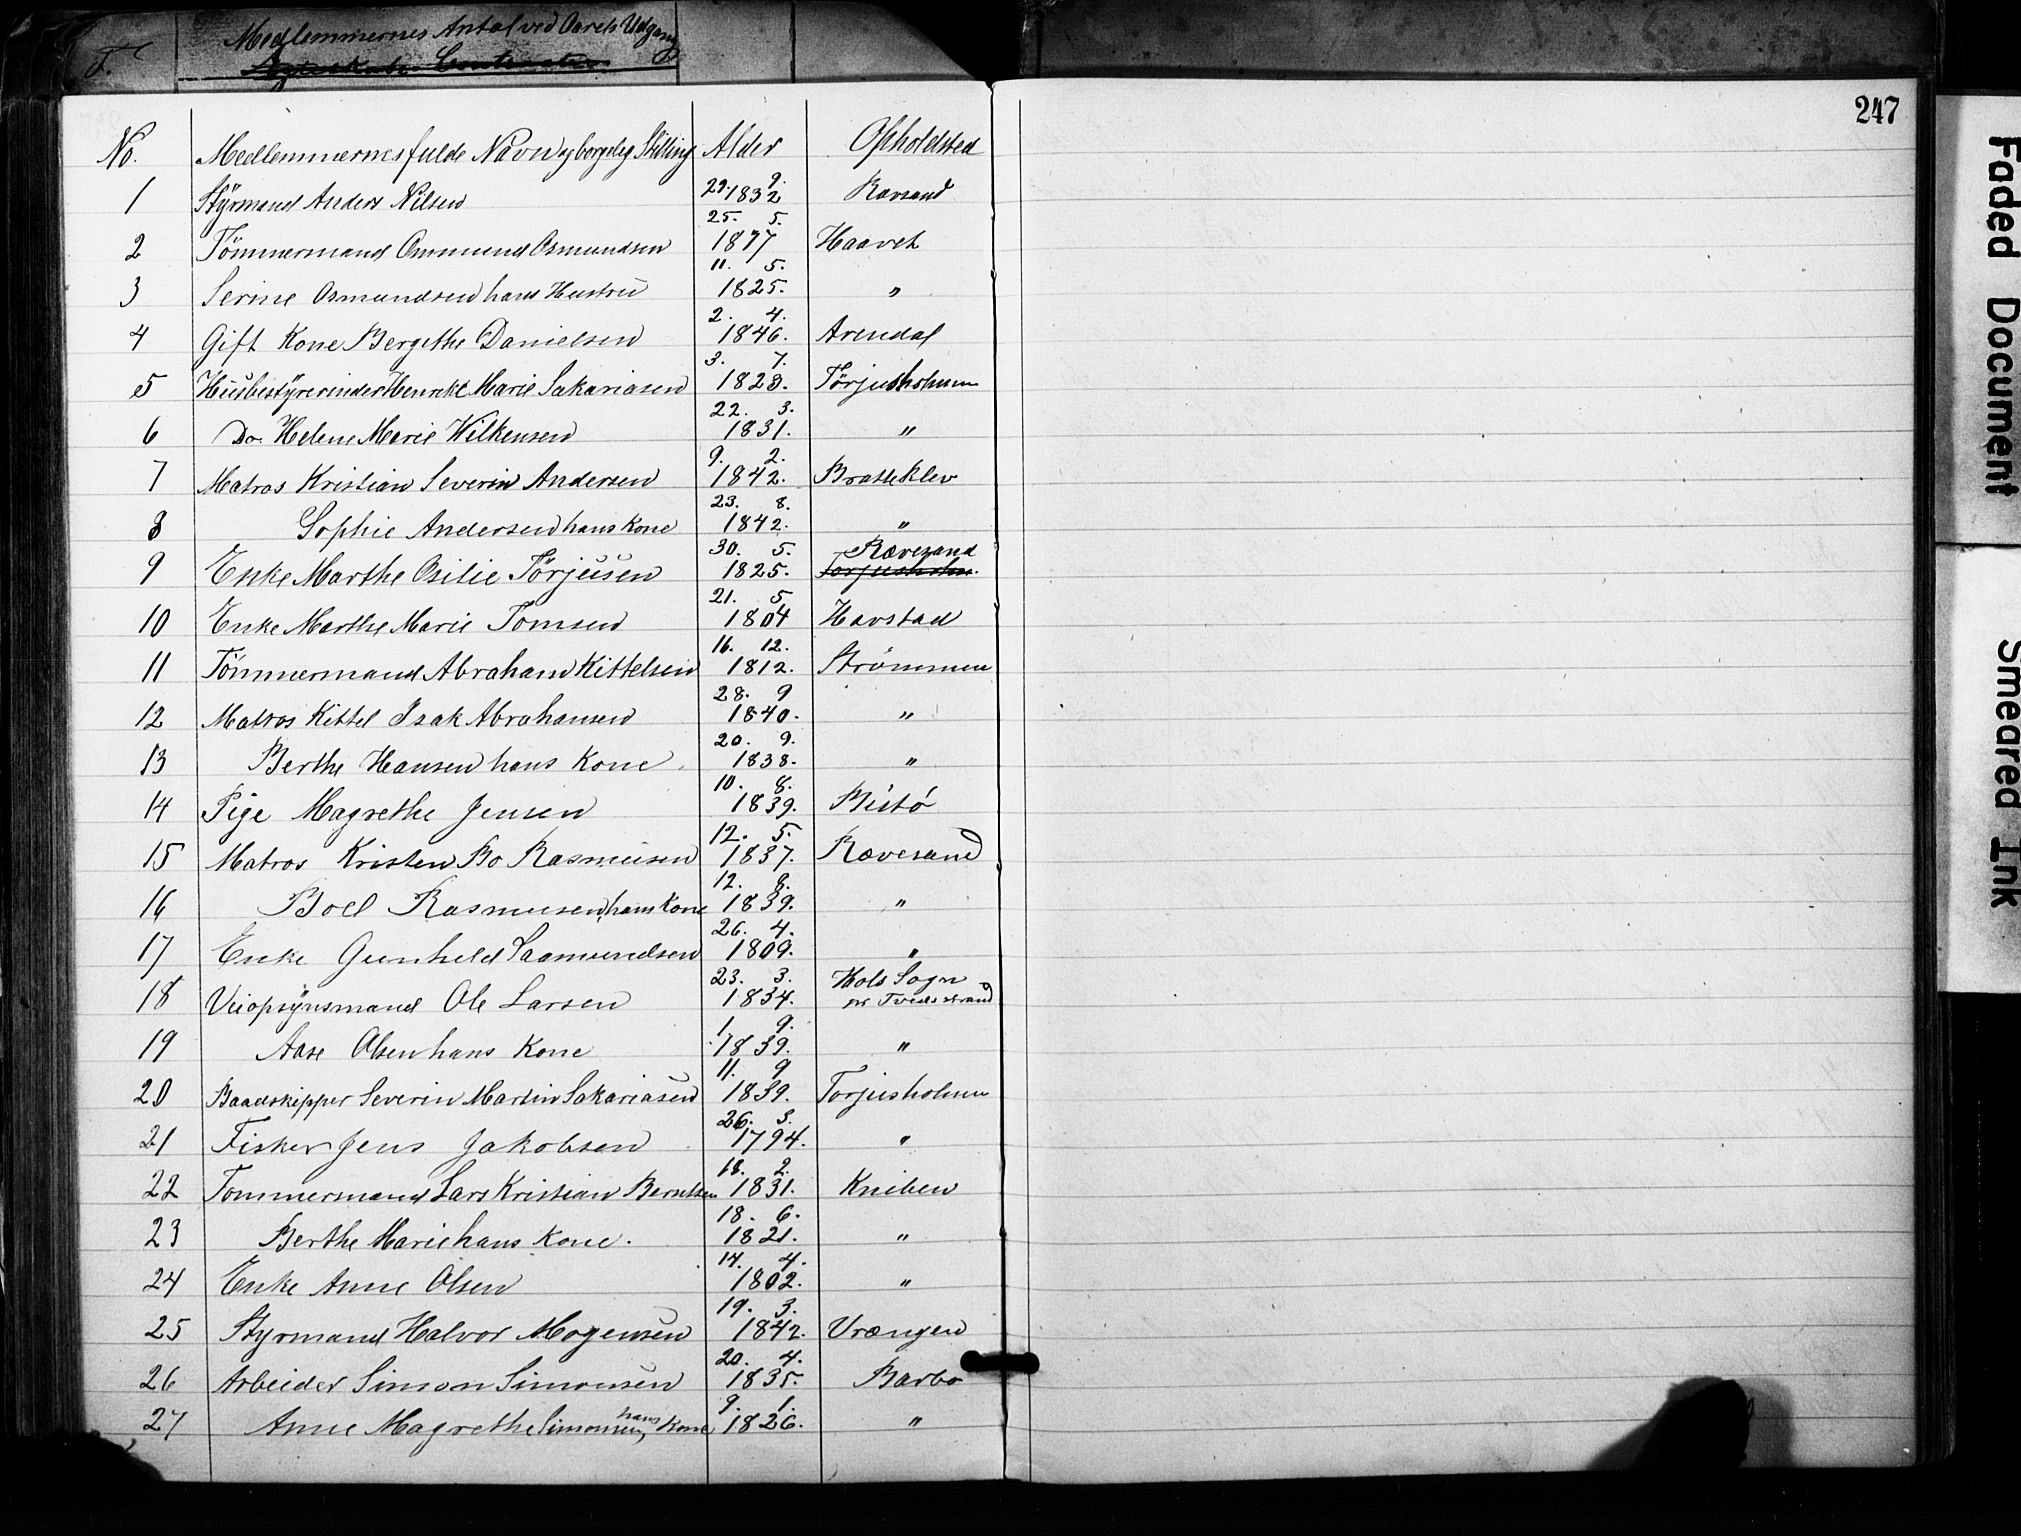 F.
Medlemmernes Antal ved Aarets Udgang
247
No. Medlemmernes fulde Navn og borgelig Stilling Alder Opholdsted
1 Styrmand Anders Nilsen 29. 9. 1832 Ravsand
2 Tömmermand Ommund Osmundsen 25. 5. 1877 Haavet
3 Serine Osmundsen hans Hustru 11. 5. 1825. "
4 Gift Kone Bergethe Danielsen 2. 4. 1846. Arendal
5 Husbestyrerinder Henrekke Marie Sakariasen 3. 7. 1823. Törjusholmen
6 Do. Helene Marie Wilkensen 22. 3. 1831. "
7 Matros Kristian Severin Andersen 9. 2. 1842. Bratteklev
8 Sophie Andersen hans Kone 23. 8. 1842. "
9 Enke Marthe Osilie Törjusen 30. 5. 1825. Rævesand Torjusholm.
10 Enke Marthe Marie Tomsen 21. 5 1804 Havstad
11 Tömmermand Abraham Kittelsen 16. 12. 1812. Strömmen
12 Matros Kittel Isak Abrahamsen 28. 9 1840. "
13 Berthe Hansen hans Kone 20. 9. 1838. "
14 Pige Magrethe Jensen 10. 8. 1839. Bustö
15 Matros Kristen Bo Rasmusen 12. 5. 1837. Rævesand
16 Boel Rasmusen, hans Kone 12. 8. 1839. "
17 Enke Gunheld Saamundsen 26. 4. 1809. "
18 Veiopsÿnsmand Ole Larsen 23. 3. 1834. Hols Sogn pr Tvedestrand
19 Aase Olsen hans Kone 1. 9. 1839. "
20 Baadskipper Severin Martin Sakariasen 11. 9 1839. Torjusholmen
21 Fisker Jens Jakobsen 26. 3. 1794. "
22 Tommermand Lars Kristian Berntsen 18. 2. 1831. Kniben
23 Berthe Marie hans Kone. 18. 6. 1821. "
24 Enke Anne Olsen 14. 4. 1802. "
25 Styrmand Halvor Mogensen 19. 3. 1842. Vrængen
26 Arbeider Simon Simonsen 20. 4. 1835. Barbo
27 Anne Magrethe Simonsen, hans Kone 9. 1. 1826. "
Faded Document
Smeared Ink